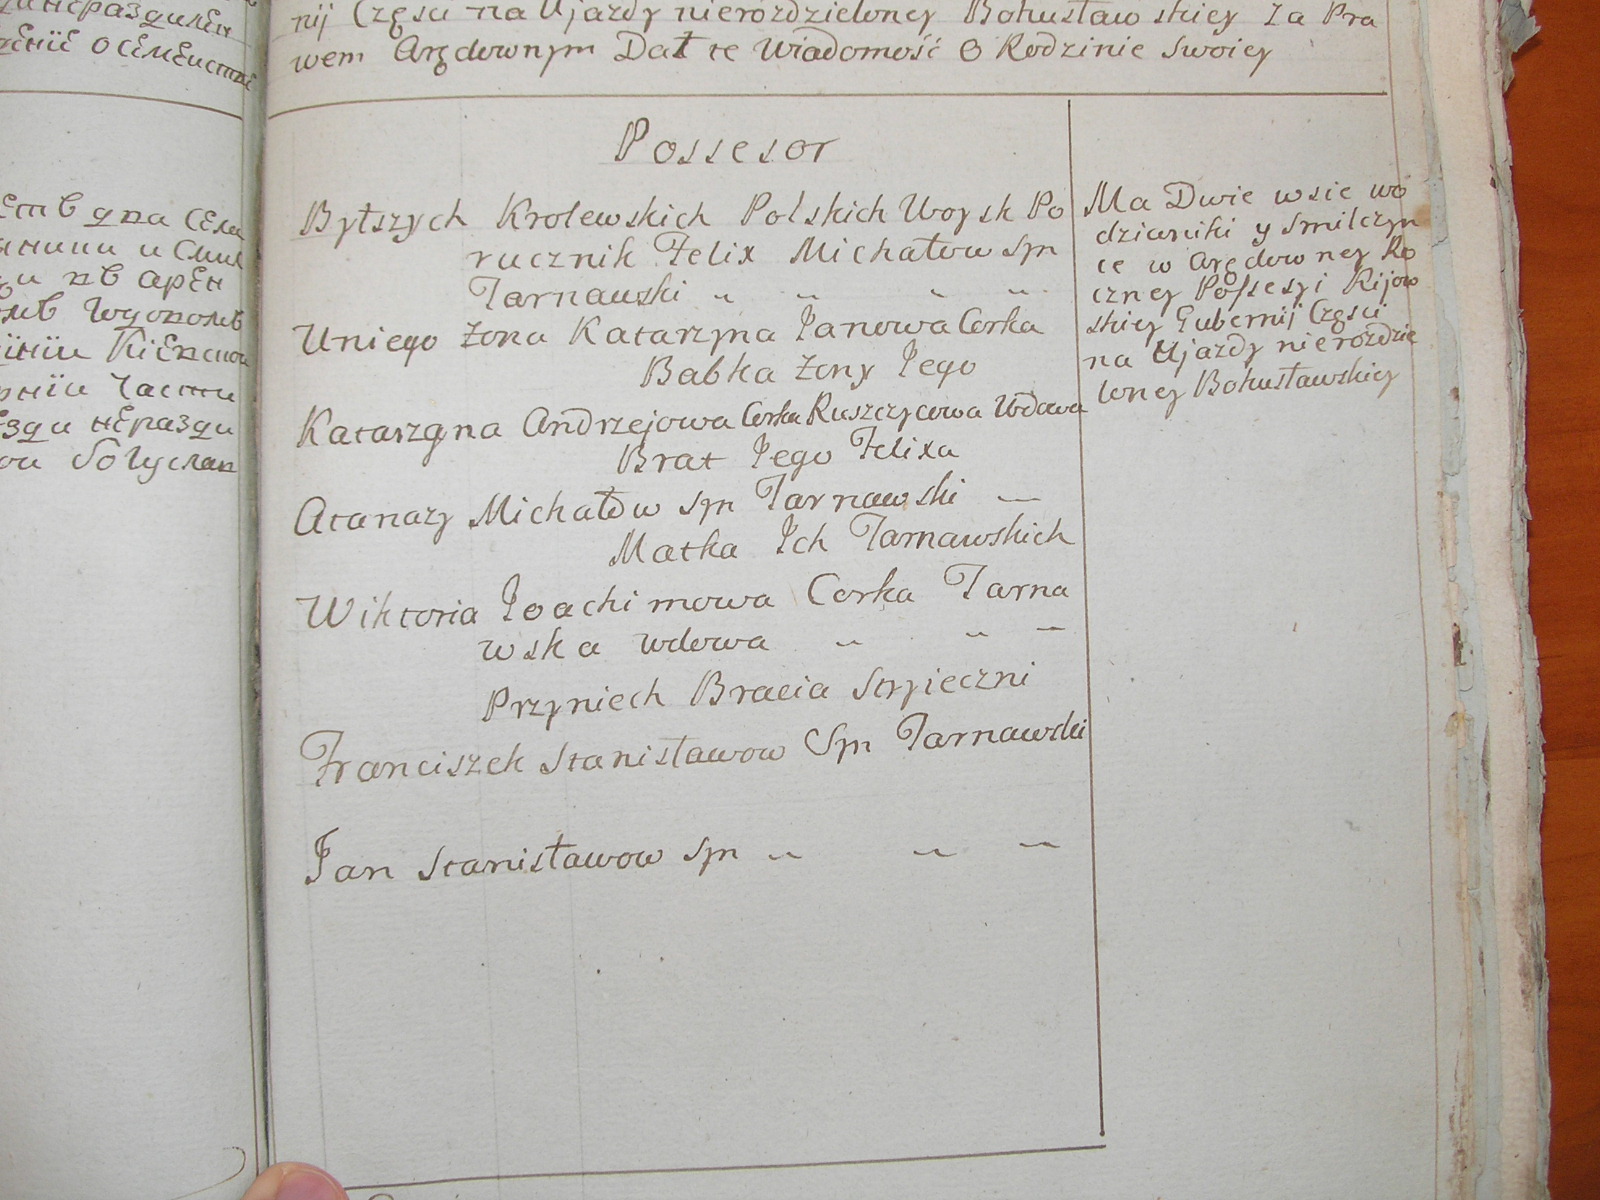 нии о семействе
етъ два села
арен
Кіевской
части
Богуслав
nij Części na Ujazdy nierozdzieloney Bohusławskiey Za Pra
wem Arędownym Dał te Wiadomość O Rodzinie Swoiey
Possesor
Bytszych Krolewskich Polskich Woysk Po
rucznik Felix Michałow Syn
Tarnawski „ „ „ „
Uniego Żona Katarzyna Janowa Corka
Babka Żony Jego
Katarzyna Andrzejowa Corka Ruszczycowa Wdowa
Brat Jego Felixa
Atanazy Michałow Syn Tarnawski —
Matka Ich Tarnawskich
Wiktoria Joachimowa Corka Tarna
wska wdowa „ „ —
Przyniech Bracia Stryieczni
Franciszek Stanisławow Syn Tarnawski
Jan Stanisławow Syn „ „ „
Ma Dwie wsie Wo
dzianiki y Smilczyn
ce w Arędowney Ro
czney Possesyi Kijow
skiey Gubernij Części
na Ujazdy nierozdzie
loney Bohusławskiey